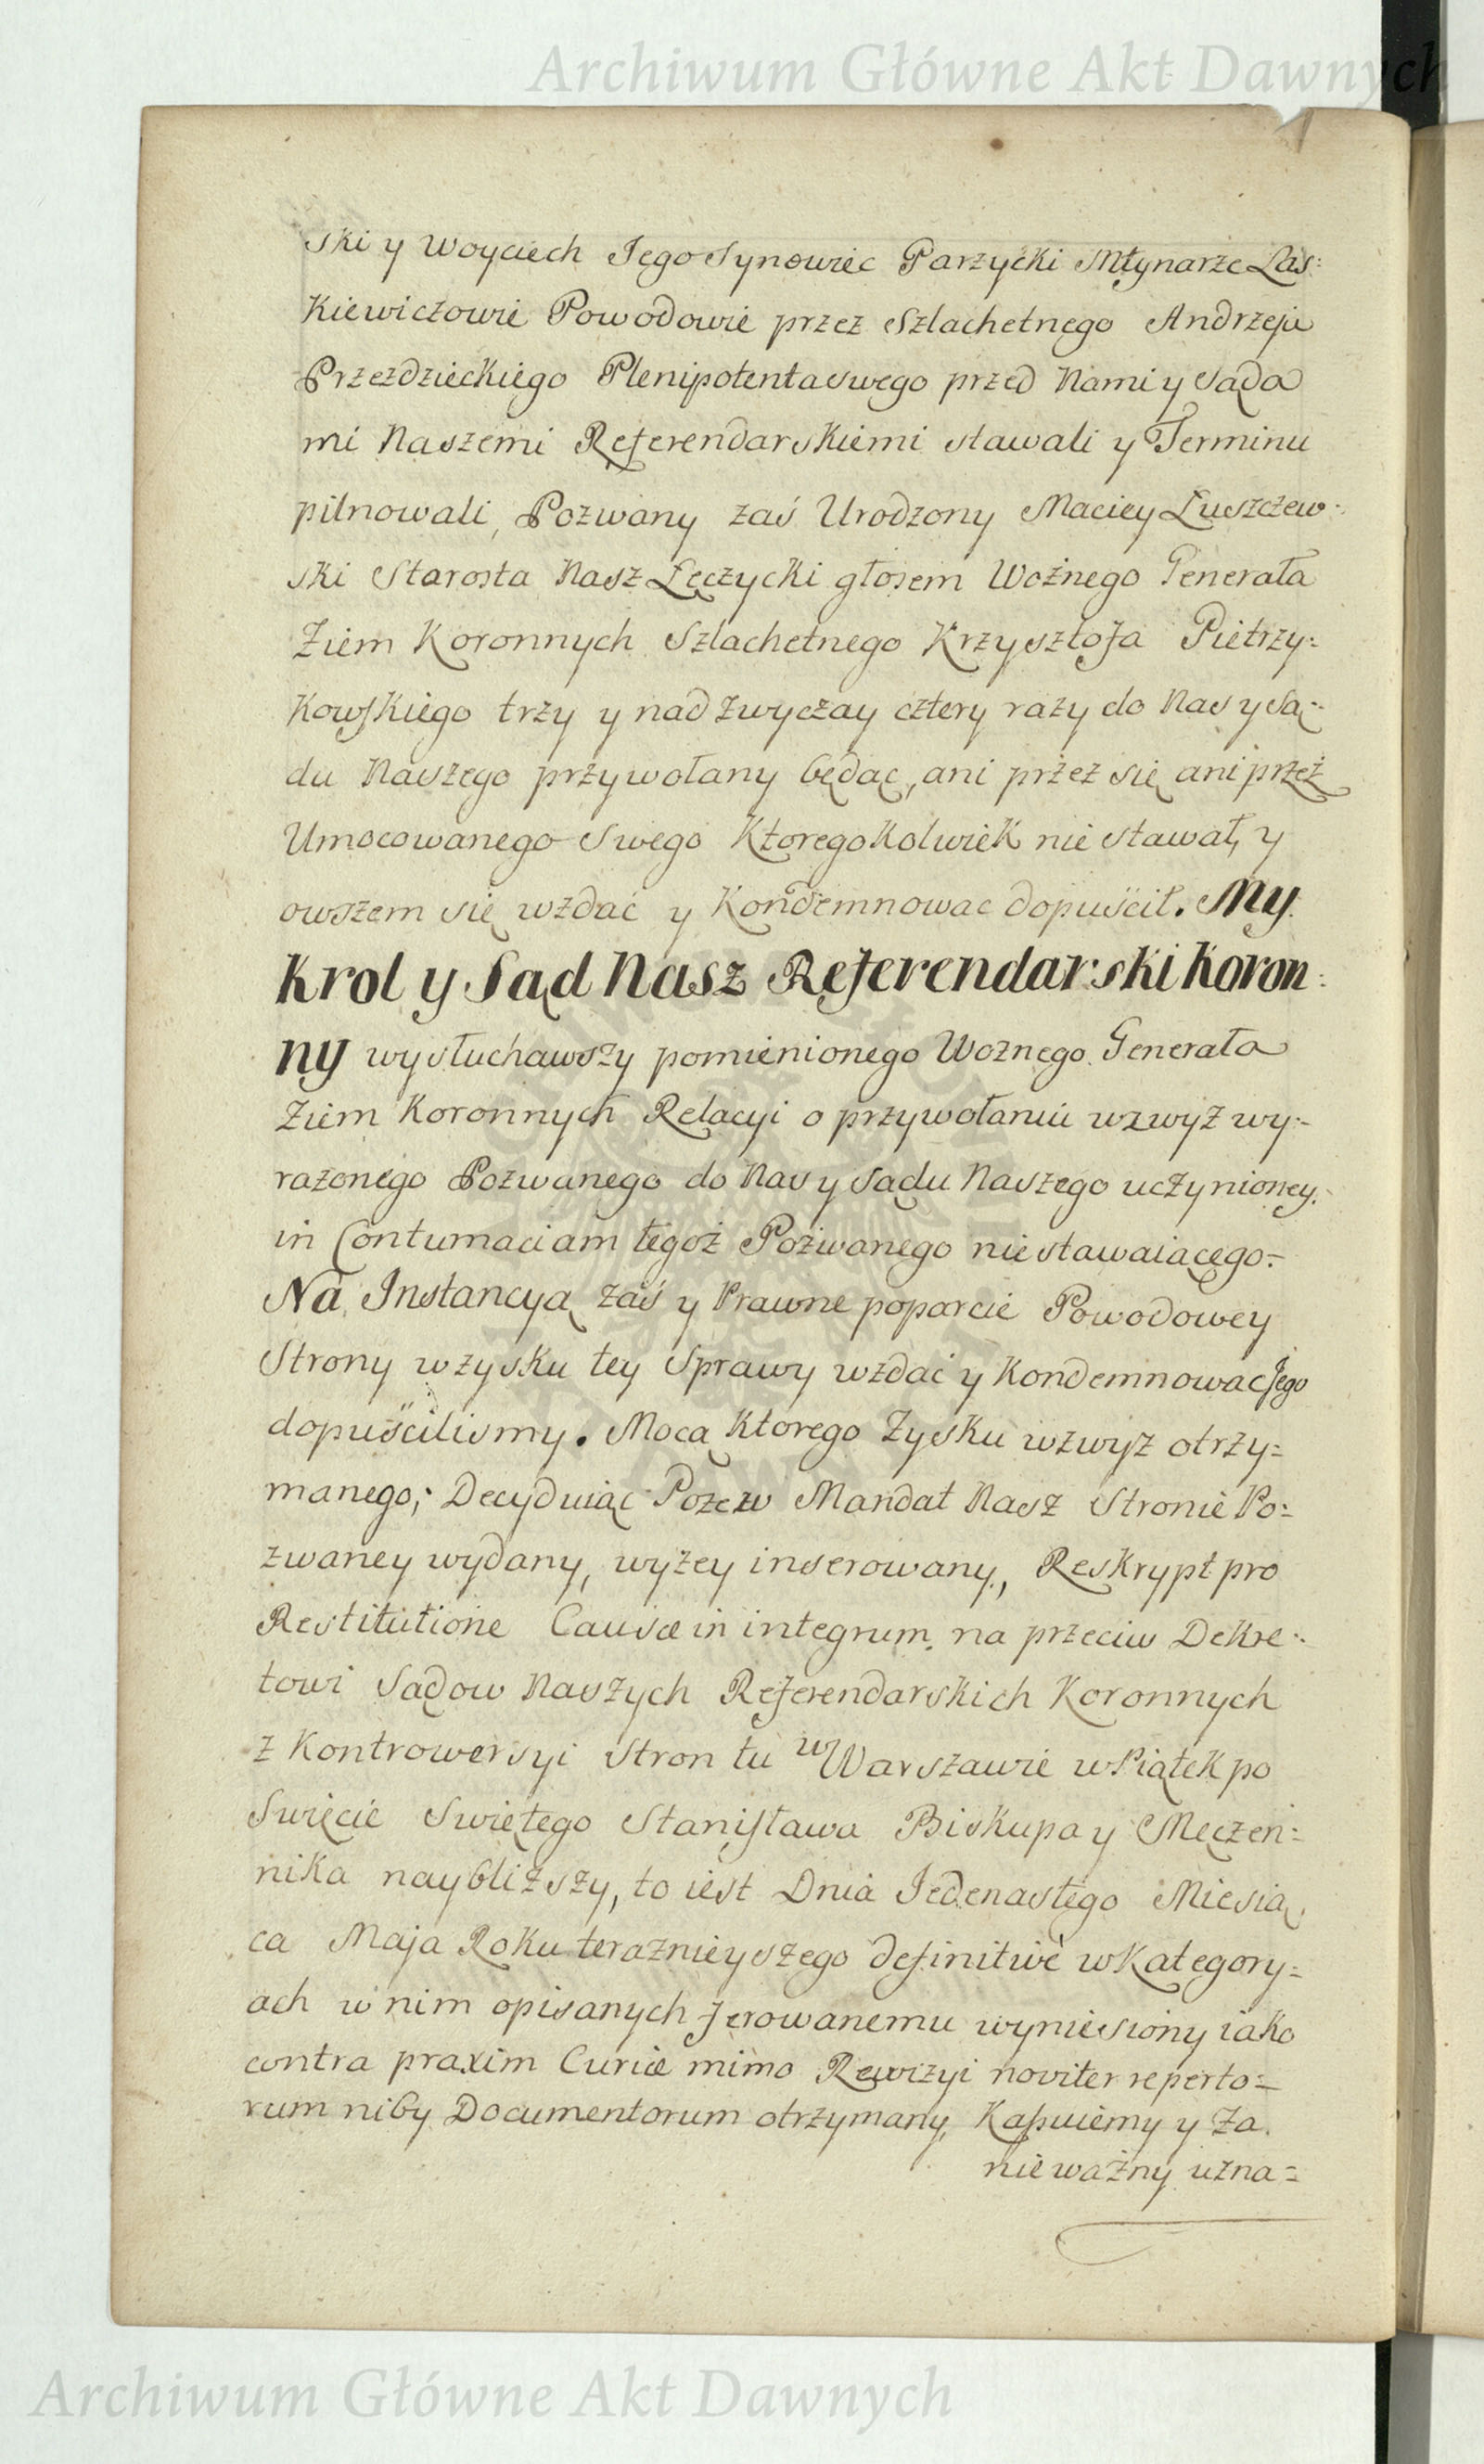 Archiwum Główne Akt Dawnych
ski y Woyciech Jego Synowiec Parzycki Młynarze Las:
kiewiczowie Powodowie przez Szlachetnego Andrzeja
Przezdzieckiego Plenipotenta swego przed Nami y Sąda
mi Naszemi Referendarskiemi stawali y Terminu
pilnowali, Pozwany zaś Urodzony Maciey Łuszczew:
ski Starosta Nasz Łęczycki głosem Woźnego Generała
Ziem Koronnych Szlachetnego Krzysztofa Pietrzy:
kowskiego trzy y nad zwyczay cztery razy do Nas y Są:
du Naszego przywołany będąc, ani przez się ani przez
Umocowanego Swego Ktoregokolwiek nie stawał, y
owszem się wzdać y Kondemnowac dopuścił. My
Krol y Sąd Nasz Referendarski Koron:
ny wysłuchawszy pomienionego Woznego Generała
Ziem Koronnych Relacyi o przywołaniu wzwyż wy:
rażonego Pozwanego do Nas y Sądu Naszego uczynioney.
in Contumaciam tegoż Pozwanego niestawaiącego:
Na Instancyą zaś y Prawne poparcie Powodowey
Strony w zysku tey Sprawy wzdać y Kondemnowac Jego
dopuściliśmy. Mocą Ktorego Zysku wzwyż otrzy:
manego; Decyduiąc Pozew Mandat Nasz Stronie Po:
zwaney wydany, wyżey inserowany, Reskrypt pro
Restitutione Causæ in integrum na przeciw Dekre:
towi Sądow Naszych Referendarskich Koronnych
z Kontrowersyi Stron tu w Warszawie w Piątek po
Swięcie Swiętego Stanisława Biskupa y Męczen:
nika naybliższy, to iest Dnia Jedenastego Miesią
ca Maja Roku teraznieyszego definitivè w Kategory:
ach w nim opisanych ferowanemu wyniesiony iako
contra praxim Curiæ mimo Rewizyi noviter reperto:
rum niby Documentorum otrzymany, Kassuiemy y za
nieważny uzna:
Archiwum Główne Akt Dawnych